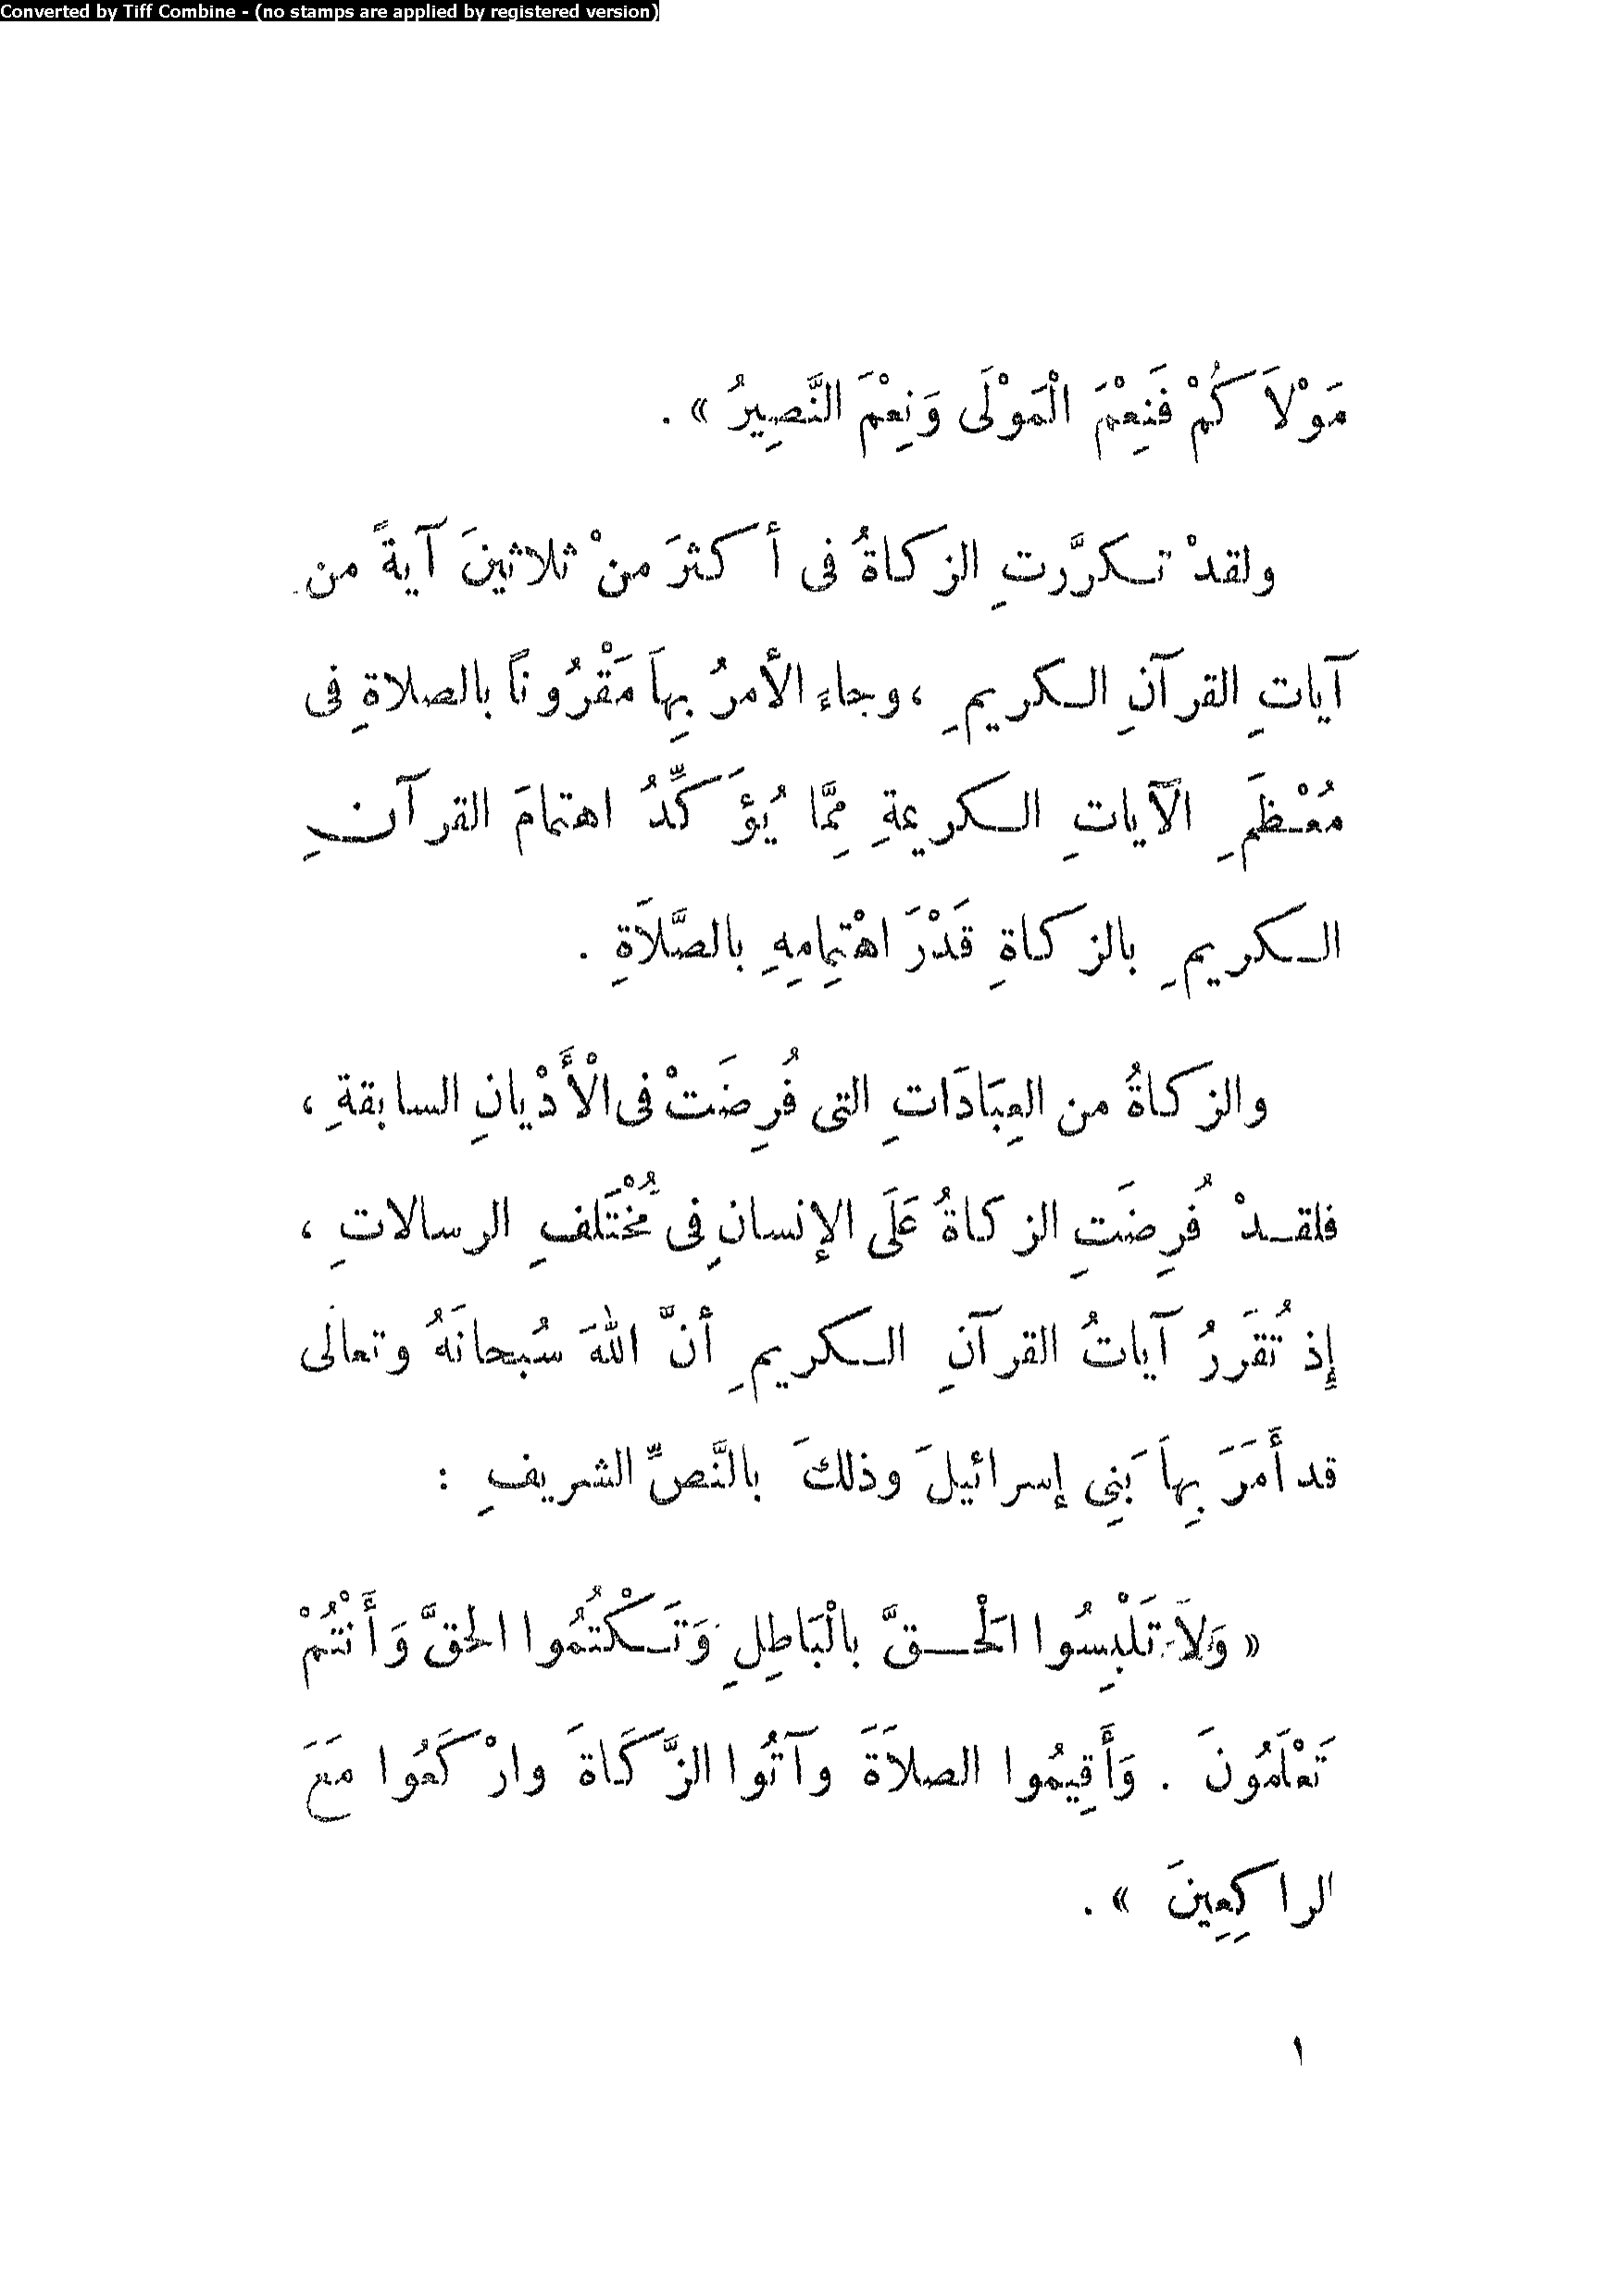 Converted by Tiff Combine - (no stamps are applied by registered version)
مَوْلَاكُمْ فَنِعْمَ الْمَوْلَى وَنِعْمَ النَّصِيرُ » .
ولقدْ تكرَّرتِ الزكاةُ فى أكثرَ منْ ثلاثينَ آيةً من
آياتِ القرآنِ الكريمِ ، وجاءَ الأمرُ بِهاَ مَقْرُوناً بالصلاةِ فى
مُعْظَمِ الآياتِ الكريمةِ مِمَّا يُؤَكِّدُ اهتمامَ القرآنِ
الكريمِ بالزكاةِ قَدْرَ اهْتِمامِهِ بالصَّلاَةِ .
والزكاةُ من العِبَادَاتِ التى فُرِضَتْ فى الْأَدْيانِ السابقةِ ،
فلقدْ فُرِضَتِ الزكاةُ عَلَى الإنسانِ فى مُخْتَلَفِ الرسالاتِ ،
إِذ تُقَررُ آياتُ القرآنِ الكريمِ أنَّ اللهَ سُبحانَهُ وتعالَى
قد أَمَرَ بِهاَ بَنِى إسرائيلَ وذلكَ بالنَّصِّ الشريفِ :
« وَلاَ تَلْبِسُوا الْحَقَّ بالْبَاطِلِ وَتَكْتُمُوا الحقَّ وَأَنْتُمْ
تَعْلَمُونَ . وَأَقِيمُوا الصلاَةَ وآتُوا الزَّكَاةَ وارْكَعُوا مَعَ
الراكِعِينَ » .
١